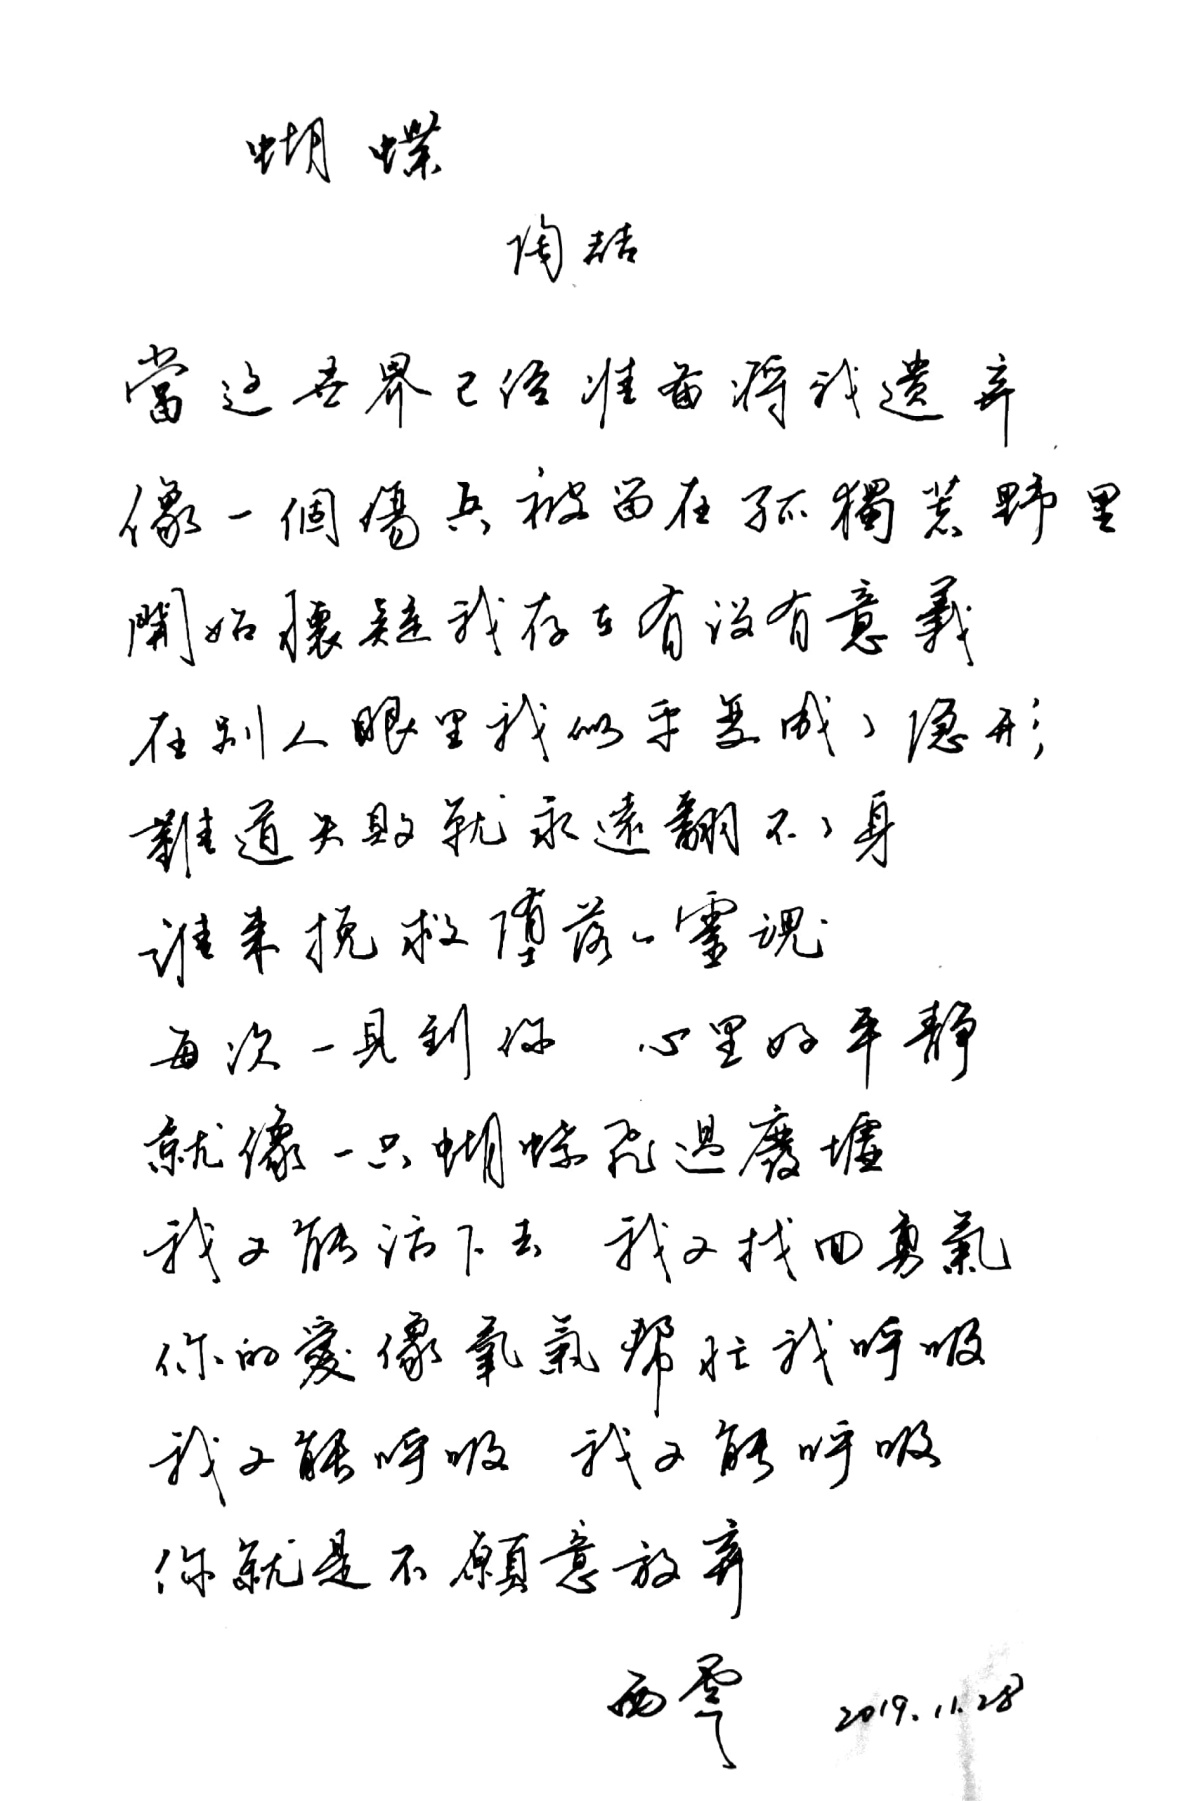 蝴蝶
陶喆
當这世界已经准备将我遗弃
像一個傷兵被留在孤獨荒野里
開始懷疑我存在有没有意義
在别人眼里我似乎变成了隐形
難道失敗就永遠翻不了身
谁来挽救堕落的靈魂
每次一見到你 心里好平静
就像一只蝴蝶飛過廢墟
我又能活下去 我又找回勇氣
你的愛像氧氣帮忙我呼吸
我又能呼吸 我又能呼吸
你就是不願意放弃
2019.11.28